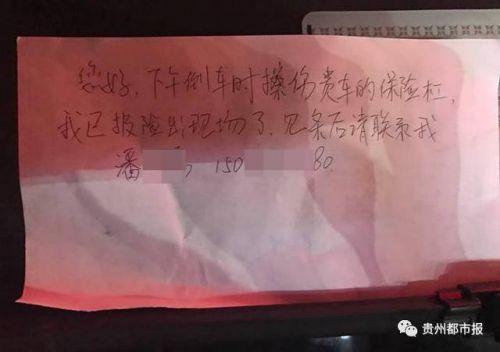 您好，下午倒车时擦伤贵车的保险杠，
我已报险出现场了.见条后请联系我
潘 150 80.
贵州都市报